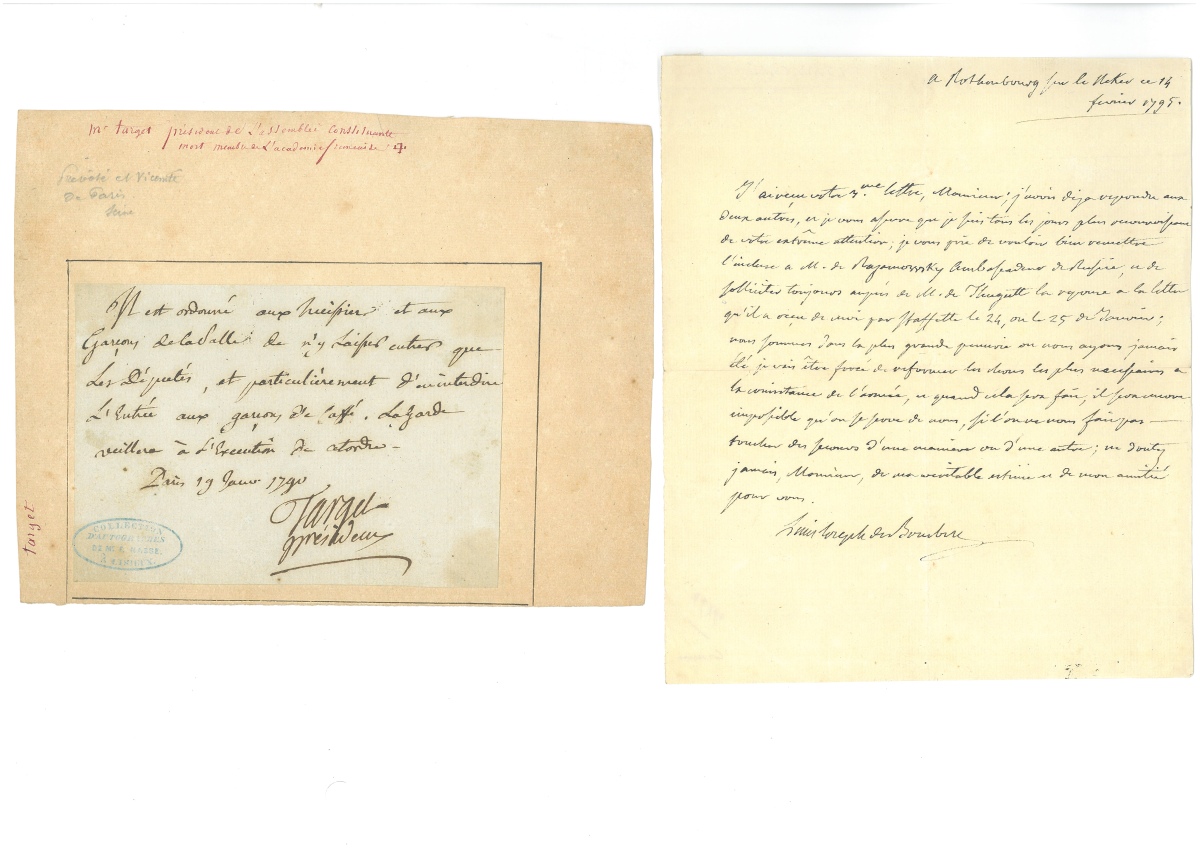 Mr target président de L'assemblée Constituante
mort membre de L'académie francaise
Prévôté et Vicomté
De Paris
Il est ordonné aux huissiers et aux
Garçons de la Salle de n'y Laisser entrer que
Les Députés, et particulièrement d'en interdire
L'Entrée aux garçons de Caffé. La Garde
veillera à L'Exécution de cet ordre -
Paris 19 Janv 1790
Target
président
target
COLLECTION
D'AUTOGRAPHES
DE Mr
A
a Rothenbourg sur le Neker ce 14
fevrier 1795.
J'ai recu votre 3.me lettre, Monsieur; j'avois deja repondu aux
deux autres, et je vous assure que je suis tous les jours plus reconnoissant
de votre extrême attention; je vous prie de vouloir bien remettre
l'incluse a M. de Razamowsky Ambassadeur de Russie, et de
solliciter toujours auprès de M. de Thugutt la reponse a la lettre
qu'il a recu de moi par staffette le 24, ou le 25 de Janvier;
nous sommes dans la plus grande penurie ou nous ayons jamais
été, je vais être forcé de reformer les choses les plus necessaires a
la consistance de l'armée, et quand cela sera fait, il sera encore
impossible qu'on se serve de nous, si l'on ne nous fait pas
toucher des secours d'une maniere ou d'une autre; ne doutez
jamais, Monsieur, de ma veritable estime et de mon amitié
pour vous.
Louis Joseph de Bourbon